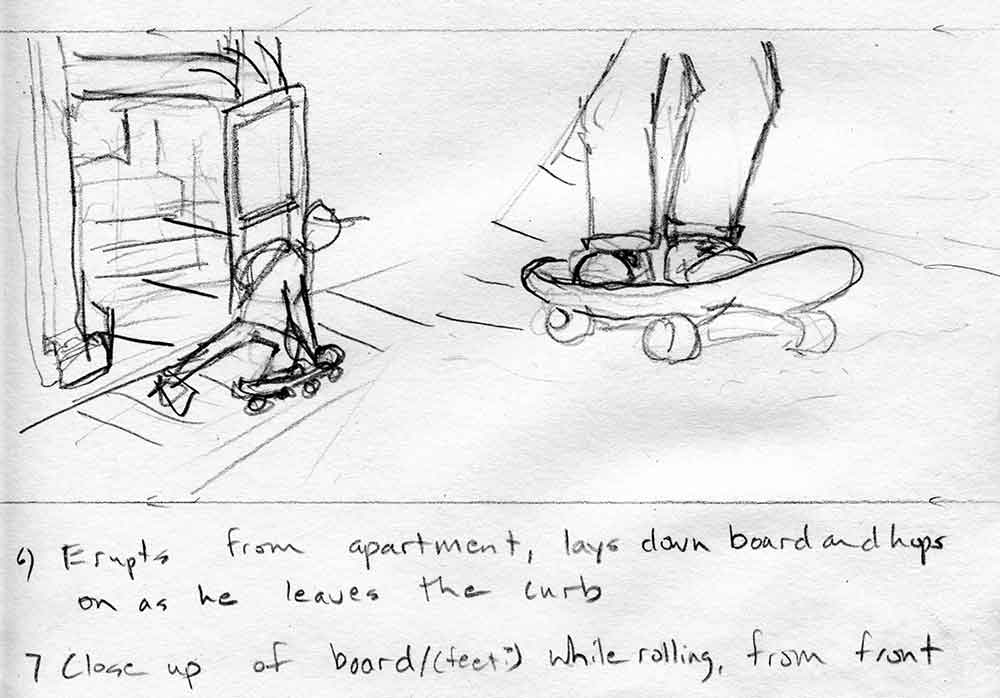 6) Erupts from apartment, lays down board and hops
on as he leaves the curb
7 Close up of board/(feet:) while rolling, from front